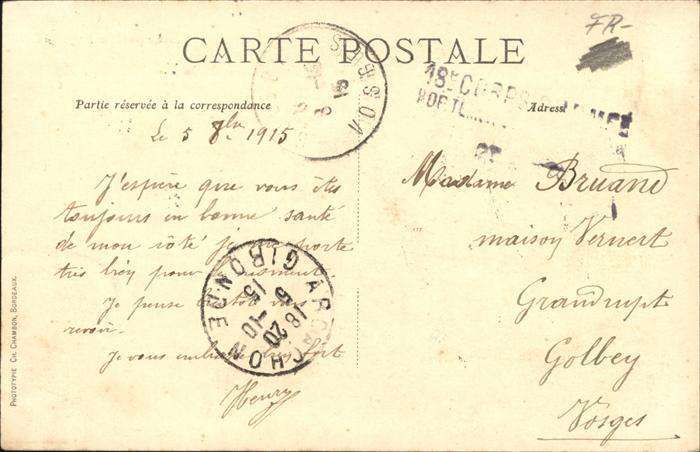 FR-
CARTE POSTALE
Partie réservée à la correspondance
Le 5 8bre 1915
J'espère que vous êtes
toujours en bonne santé
de mon côté je me porte
très bien pour le moment
Je pense bientôt vous
revoir.
Je vous embrasse bien fort
Henry
18e CORPS
Adresse
Madame Bruand
maison Vernert
Grandrupt
Golbey
Vosges
VOSGES
ARCACHON
GIRONDE
18 20
6-10
15
PHOTOTYPIE CH. CHAMBON, BORDEAUX.